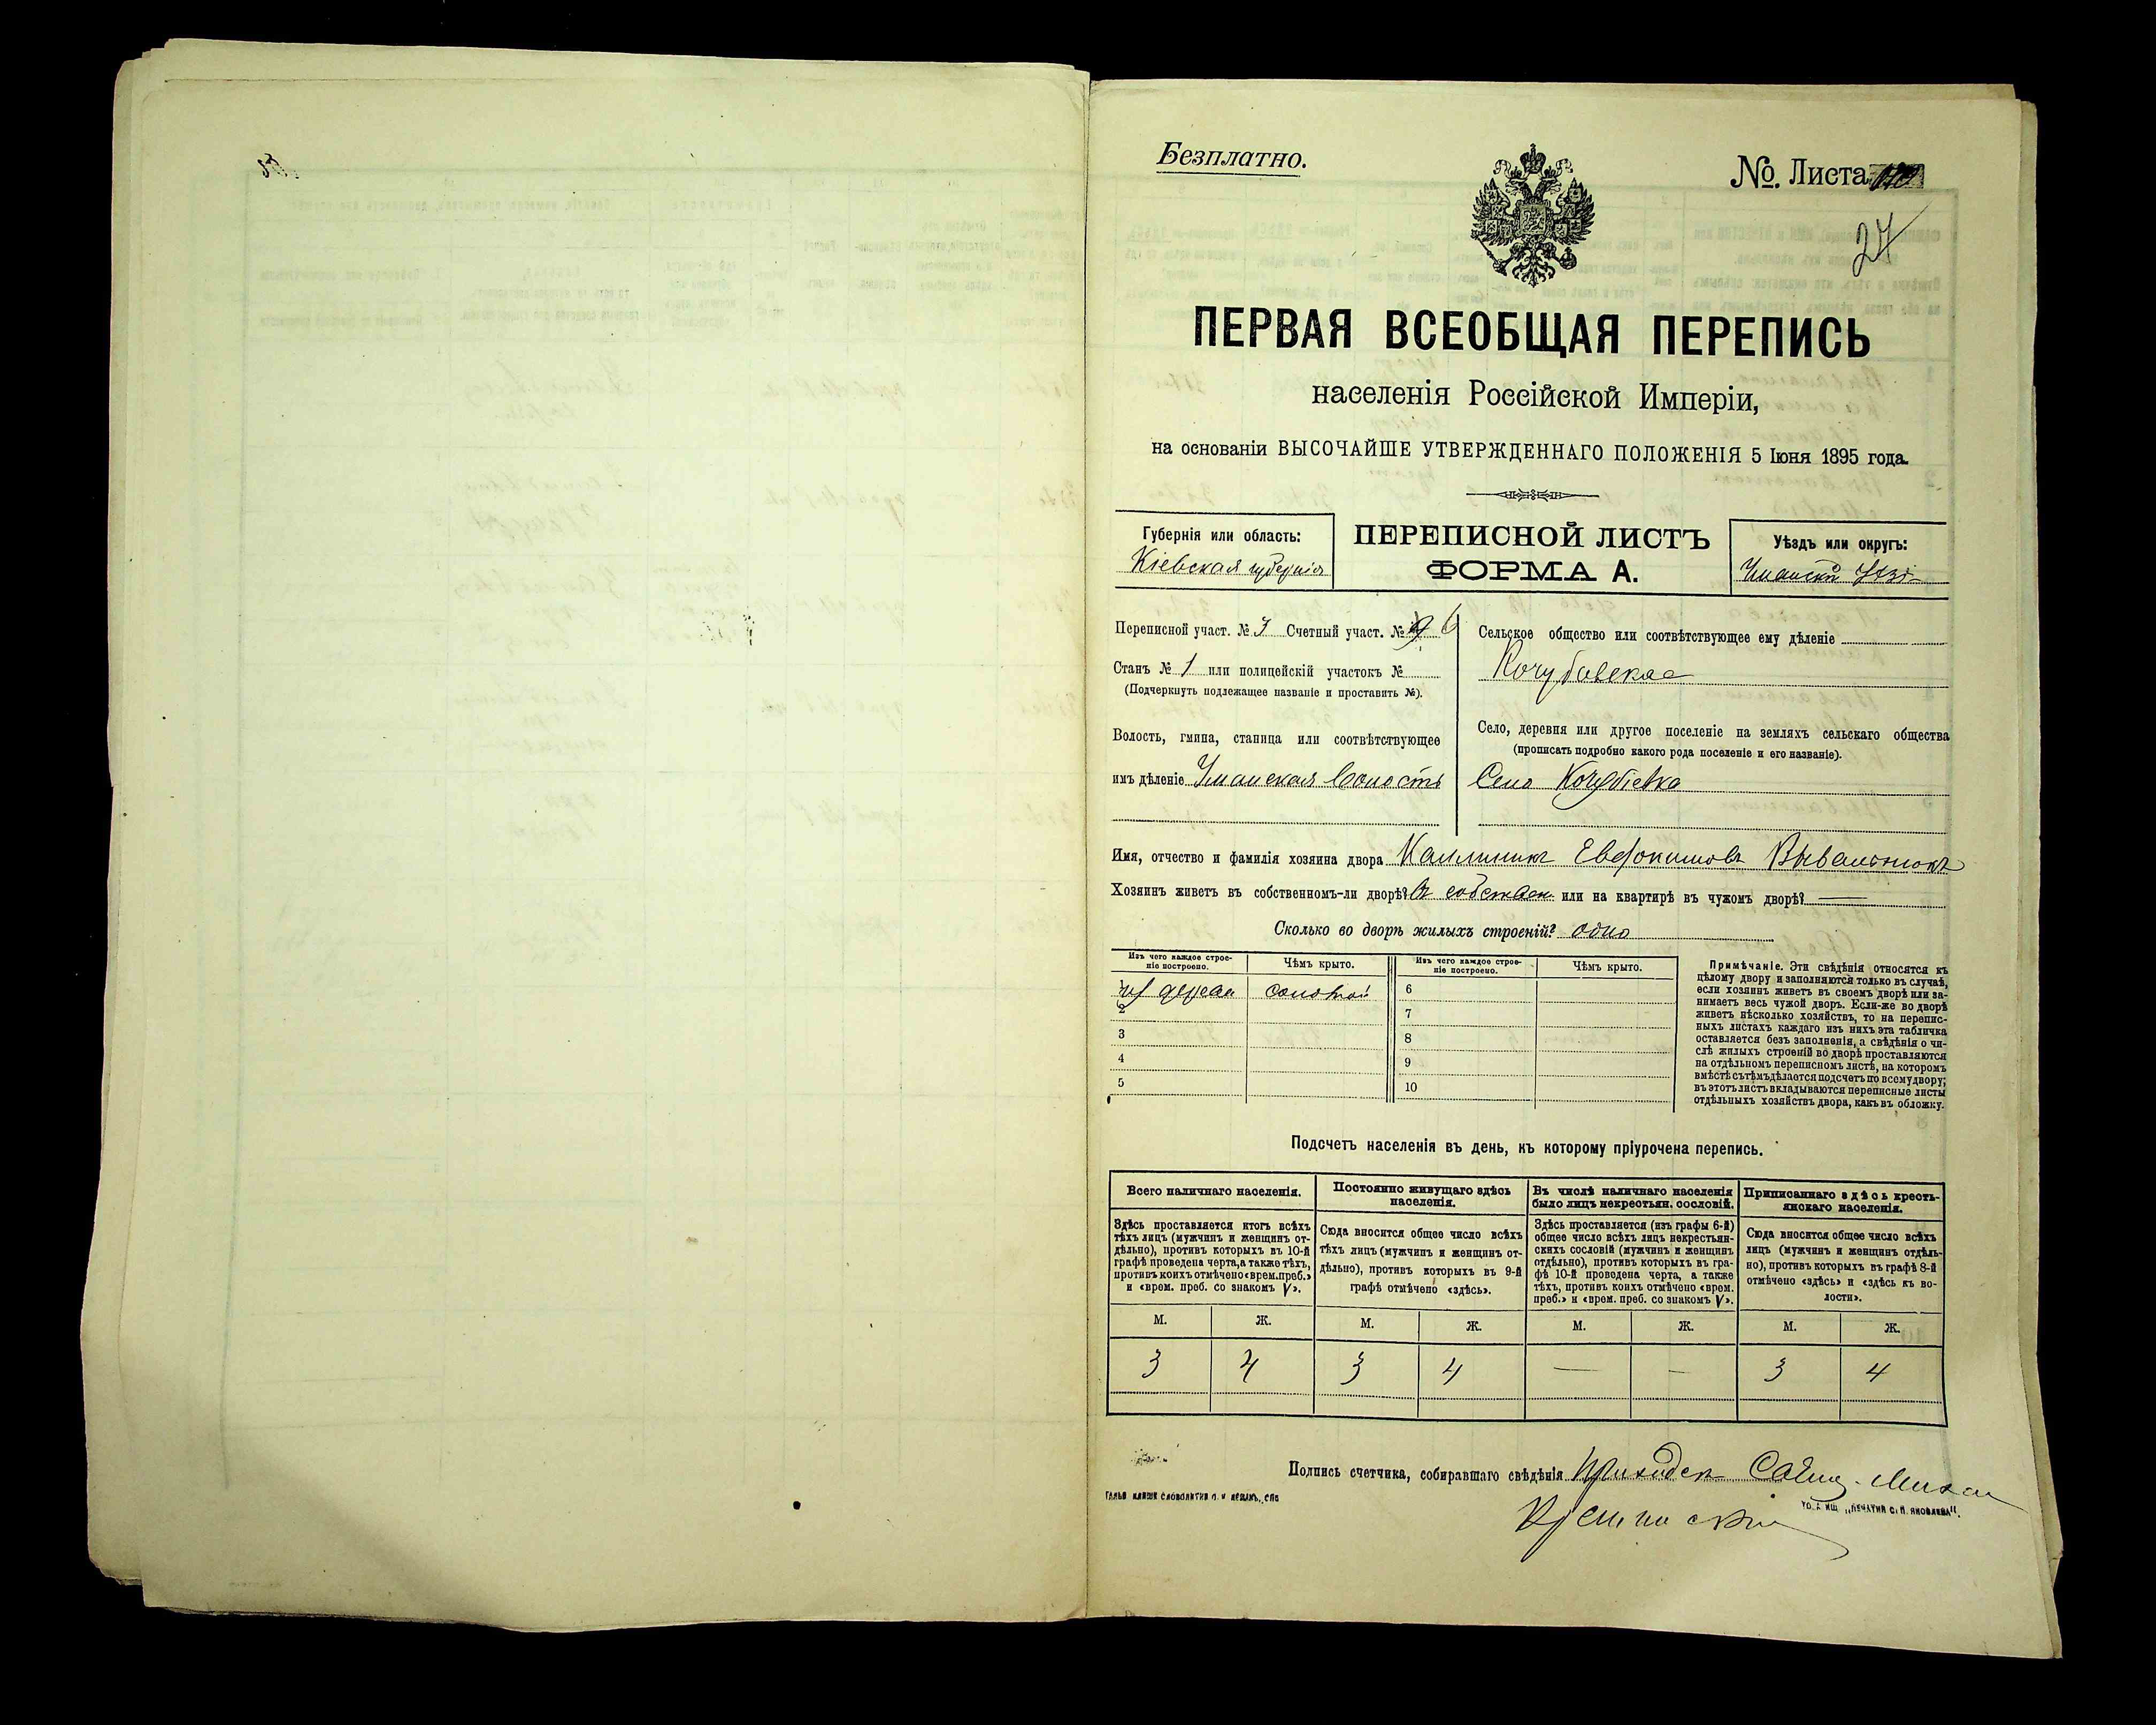 Безплатно.
№. Листа
24
ПЕРВАЯ ВСЕОБЩАЯ ПЕРЕПИСЬ
населенія Россійской Имперіи,
на основаніи ВЫСОЧАЙШЕ УТВЕРЖДЕННАГО ПОЛОЖЕНІЯ 5 Іюня 1895 года.
Губернія или область:
Кіевская губернія
ПЕРЕПИСНОЙ ЛИСТЪ
ФОРМА А.
Уѣздъ или округъ:
Уманскій
Переписной участ. № 3 Счетный участ. № 6
Станъ № 1 или полицейскій участокъ №
(Подчеркнуть подлежащее названіе и проставить №).
Волость, гмина, станица или соотвѣтствующее
имъ дѣленіе Уманская волость
Сельское общество или соотвѣтствующее ему дѣленіе
Кочубіевское
Село, деревня или другое поселеніе на земляхъ сельскаго общества
(прописать подробно какого рода поселеніе и его названіе).
Село Кочубіевка
Имя, отчество и фамилія хозяина двора Каллиникъ Евдокимовъ
Хозяинъ живетъ въ собственномъ-ли дворѣ? въ собствен или на квартирѣ въ чужомъ дворѣ? —
Сколько во дворѣ жилыхъ строеній? одно
Изъ чего каждое строе-
ніе построено.
Чѣмъ крыто.
Изъ чего каждое строе-
ніе построено.
Чѣмъ крыто.
изъ дерева соломой
2
3
4
5
6
7
8
9
10
Примѣчаніе. Эти свѣдѣнія относятся къ
цѣлому двору и заполняются только въ случаѣ,
если хозяинъ живетъ въ своемъ дворѣ или за-
нимаетъ весь чужой дворъ. Если-же во дворѣ
живетъ нѣсколько хозяйствъ, то на перепис-
ныхъ листахъ каждаго изъ нихъ эта табличка
оставляется безъ заполненія, а свѣдѣнія о чи-
слѣ жилыхъ строеній во дворѣ проставляются
на отдѣльномъ переписномъ листѣ, на которомъ
вмѣстѣ съ тѣмъ дѣлается подсчетъ по всему двору;
въ этотъ листъ вкладываются переписные листы
отдѣльныхъ хозяйствъ двора, какъ въ обложку.
Подсчетъ населенія въ день, къ которому пріурочена перепись.
Всего наличнаго населенія.
Здѣсь проставляется итогъ всѣхъ
тѣхъ лицъ (мужчинъ и женщинъ от-
дѣльно), противъ которыхъ въ 10-й
графѣ проведена черта, а также тѣхъ,
противъ коихъ отмѣчено «врем. преб.»
и «врем. преб. со знакомъ V».
Постоянно живущаго здѣсь
населенія.
Сюда вносится общее число всѣхъ
тѣхъ лицъ (мужчинъ и женщинъ от-
дѣльно), противъ которыхъ въ 9-й
графѣ отмѣчено «здѣсь».
Въ числѣ наличнаго населенія
было лицъ некрестьян. сословій.
Здѣсь проставляется (изъ графы 6-й)
общее число всѣхъ лицъ некрестьян-
скихъ сословій (мужчинъ и женщинъ
отдѣльно), противъ которыхъ въ гра-
фѣ 10-й проведена черта, а также
тѣхъ, противъ коихъ отмѣчено «врем.
преб.» и «врем. преб. со знакомъ V».
Приписаннаго здѣсь кресть-
янскаго населенія.
Сюда вносится общее число всѣхъ
лицъ (мужчинъ и женщинъ отдѣль-
но), противъ которыхъ въ графѣ 8-й
отмѣчено «здѣсь» и «здѣсь къ во-
лости».
М. Ж. М. Ж. М. Ж. М. Ж.
3 4 3 4 — — 3 4
Подпись счетчика, собиравшаго свѣдѣнія